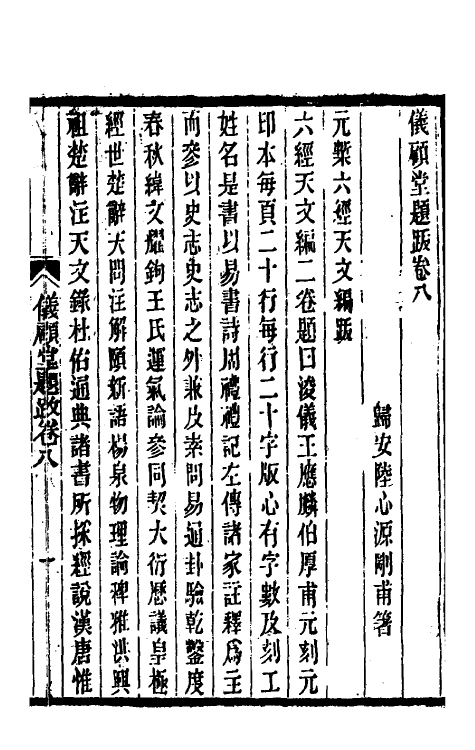 儀顧堂題跋卷八
歸安陸心源剛甫箸
元槧六經天文編跋
六經天文編二卷題曰浚儀王應麟伯厚甫元刻元
印本每頁二十行每行二十字版心有字數及刻工
姓名是書以易書詩周禮禮記左傳諸家註釋爲主
而參以史志史志之外兼及素問易通卦驗乾鑿度
春秋緯文耀鉤王氏運氣論參同契大衍厯議皇極
經世楚辭天問注解頤新語楊泉物理論稗雅洪興
祖楚辭注天文錄杜佑通典諸書所採經說漢唐惟
儀顧堂題跋卷八 一